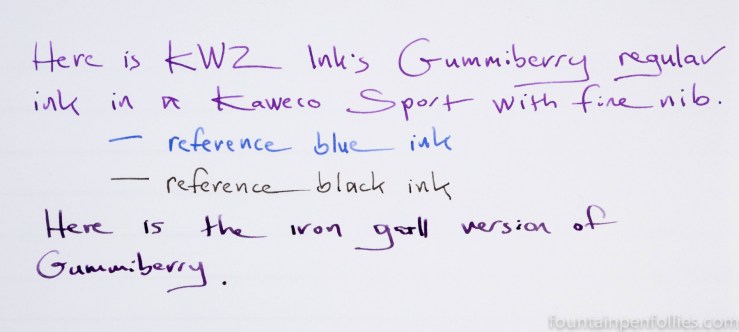 Here is KWZ Ink's Gummiberry regular
ink in a Kaweco Sport with fine nib.
— reference blue ink
— reference black ink
Here is the iron gall version of
Gummiberry.
fountainpenfollies.com